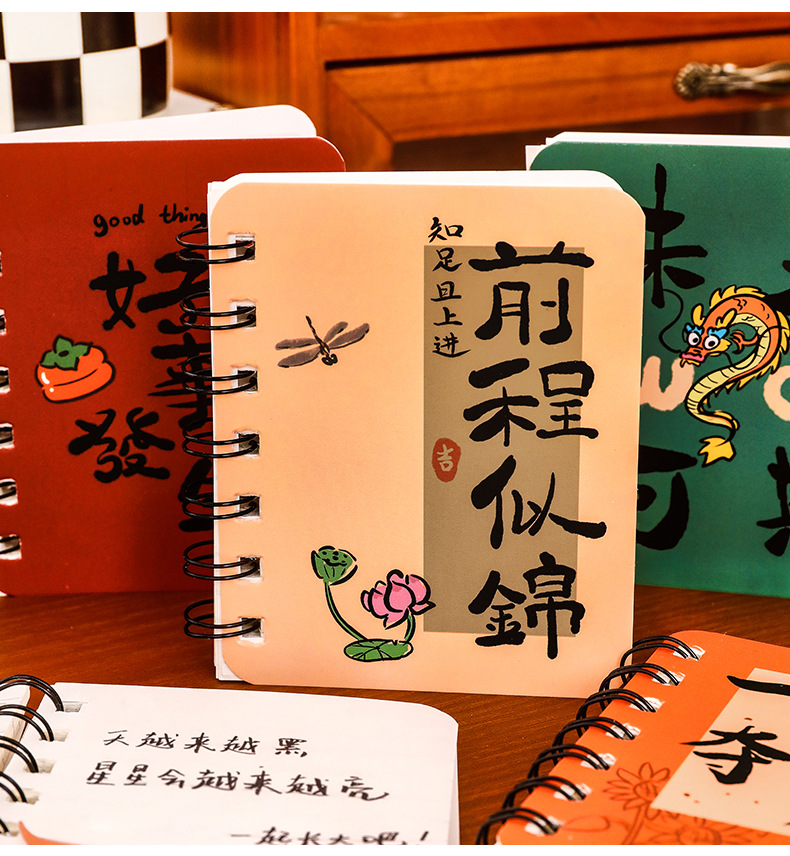 good thing
好事
發生
知足且上进
前程似錦
吉
未
可
天越来越黑
星星会越来越亮
一起长大吧!
一
夺